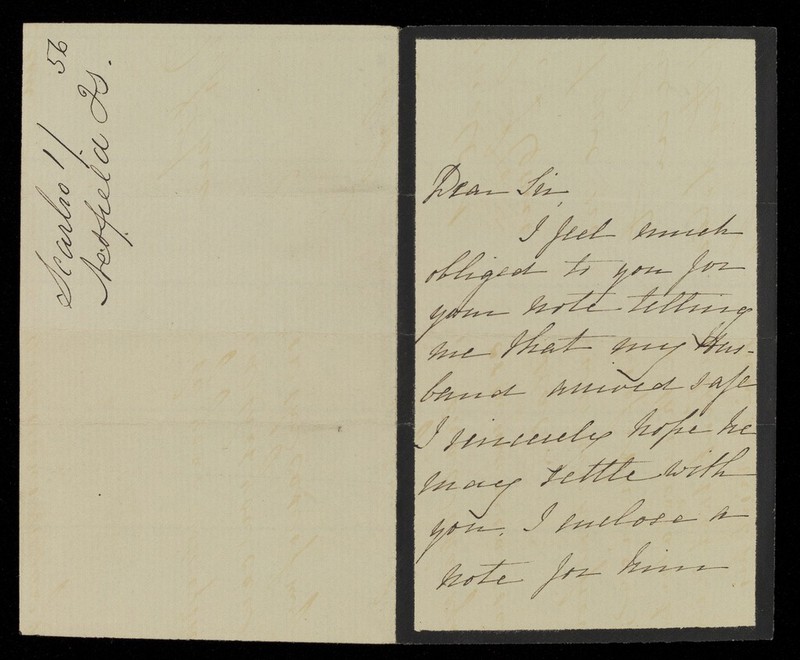 56
Dear Sir,
I feel much
obliged to you for
your note telling
me that my Hus-
band arrived safe
I sincerely hope he
may settle with
you. I enclose a
note for him